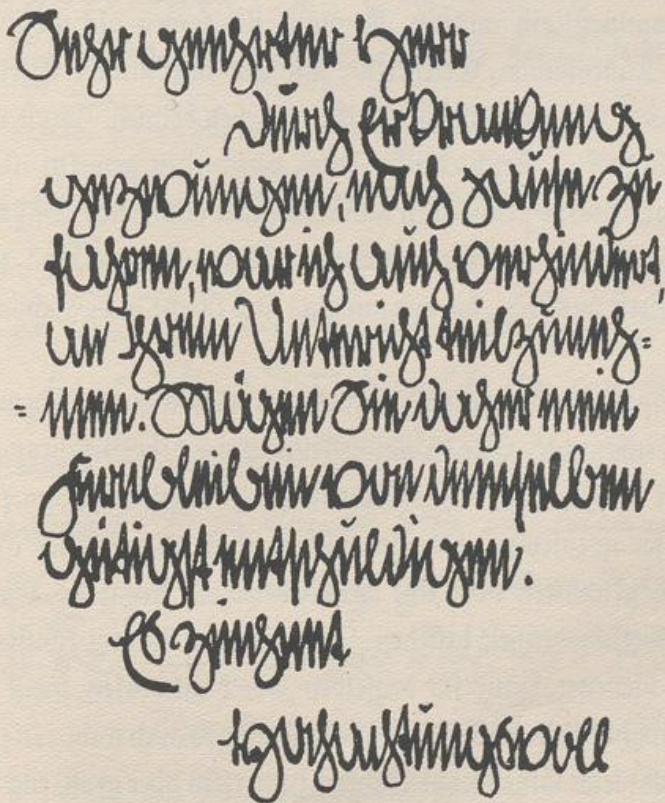 Sehr geehrter Herr
Durch Erkrankung
gezwungen, nach Hause zu
fahren, war ich auch verhindert,
an Ihrem Unterricht teilzuneh=
=men. Mögen Sie daher mein
Fernbleiben von demselben
gütigst entschuldigen.
Es zeichnet
Hochachtungsvoll